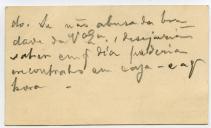 do. Se não abusa da bon-
dade de V. Exa., desejaria
saber em q dia poderia
encontral-o em casa - e a q
hora -